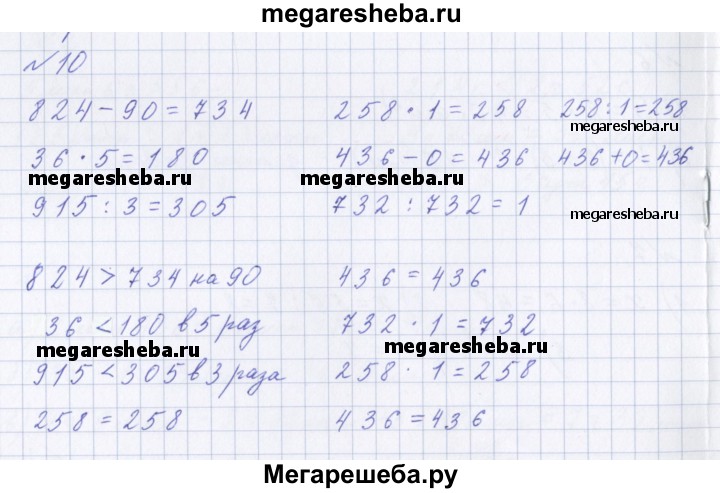 megaresheba.ru
№10
824-90=734 258·1=258 258:1=258
megaresheba.ru megaresheba.ru
36·5=180 436-0=436 436+0=436
megaresheba.ru megaresheba.ru
915:3=305 732:732=1
megaresheba.ru
824>734 на 90 436=436
36<180 в 5 раз 732·1=732
megaresheba.ru megaresheba.ru
915<305 в 3 раза 258·1=258
258=258 436=436
Мегарешеба.ру